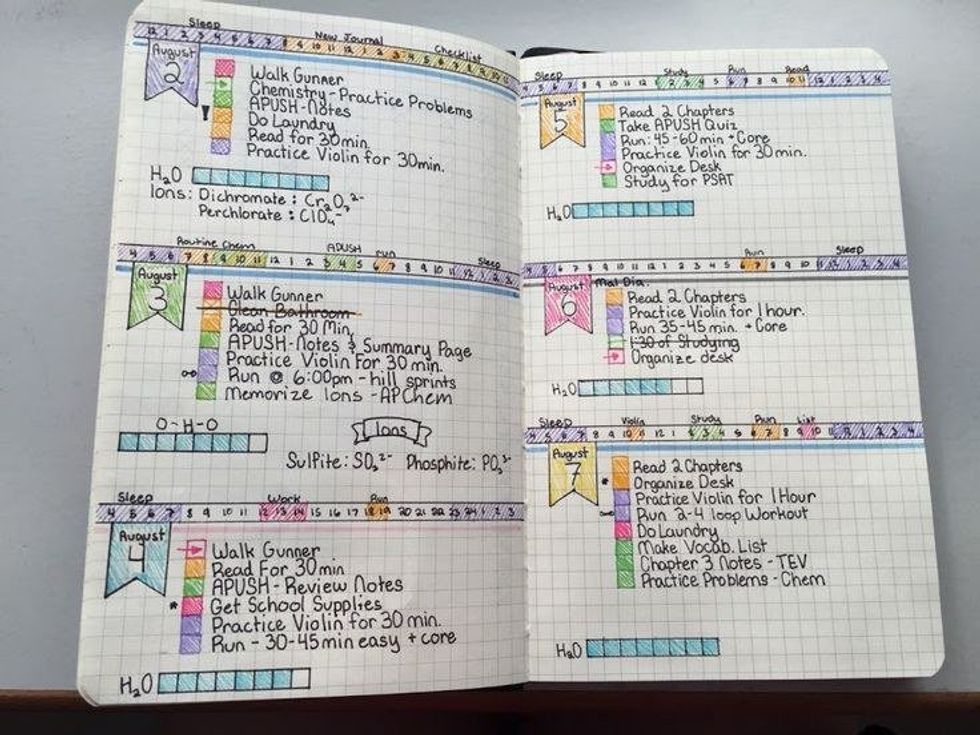 Sleep New Journal Checklist
August
2
Walk Gunner
Chemistry-Practice Problems
! APUSH-Notes
Do Laundry
Read for 30min
Practice Violin for 30min.
H₂O
Ions: Dichromate: Cr₂O₇²⁻
Perchlorate: ClO₄⁻
Routine Chem APUSH run Sleep
4 5 6 7 8 9 10 11 12 1 2 3 4 5 6 7 8 9 10 11 12 1 2 3
August
3
Walk Gunner
Clean Bathroom
Read for 30 Min.
APUSH-Notes & Summary Page
Practice Violin For 30 min.
Run @ 6:00pm - hill sprints
Memorize Ions - AP Chem
O-H-O
Ions
Sulfite: SO₃²⁻ Phosphite: PO₃³⁻
Sleep Work Run
4 5 6 7 8 9 10 11 12 13 14 15 16 17 18 19 20 21 22 23 24 1 2 3
August
4
Walk Gunner
Read For 30 min
APUSH-Review Notes
* Get School Supplies
Practice Violin for 30 min.
Run - 30-45min easy + core
H₂O
Sleep Study Run Read
4 5 6 7 8 9 10 11 12 1 2 3 4 5 6 7 8 9 10 11 12 1 2 3 4
August
5
Read 2 Chapters
Take APUSH Quiz
Run: 45-60min + Core
Practice Violin for 30 min.
Organize Desk
Study for PSAT
H₂O
Run Sleep
4 5 6 7 8 9 10 11 12 1 2 3 4 5 6 7 8 9 10 11 12 1 2 3 4
August
6
Mal Dia.
Read 2 Chapters
Practice Violin for 1 hour.
Run 35-45 min. + Core
1:30 of Studying
Organize desk
H₂O
Sleep Violin Study Run List
4 5 6 7 8 9 10 11 12 1 2 3 4 5 6 7 8 9 10 11 12 1 2 3 4
August
7
Read 2 Chapters
* Organize Desk
Practice Violin for 1 Hour
Run 2-4 loop Workout
Do Laundry
Make Vocab. List
Chapter 3 Notes - TEV
Practice Problems - Chem
H₂O